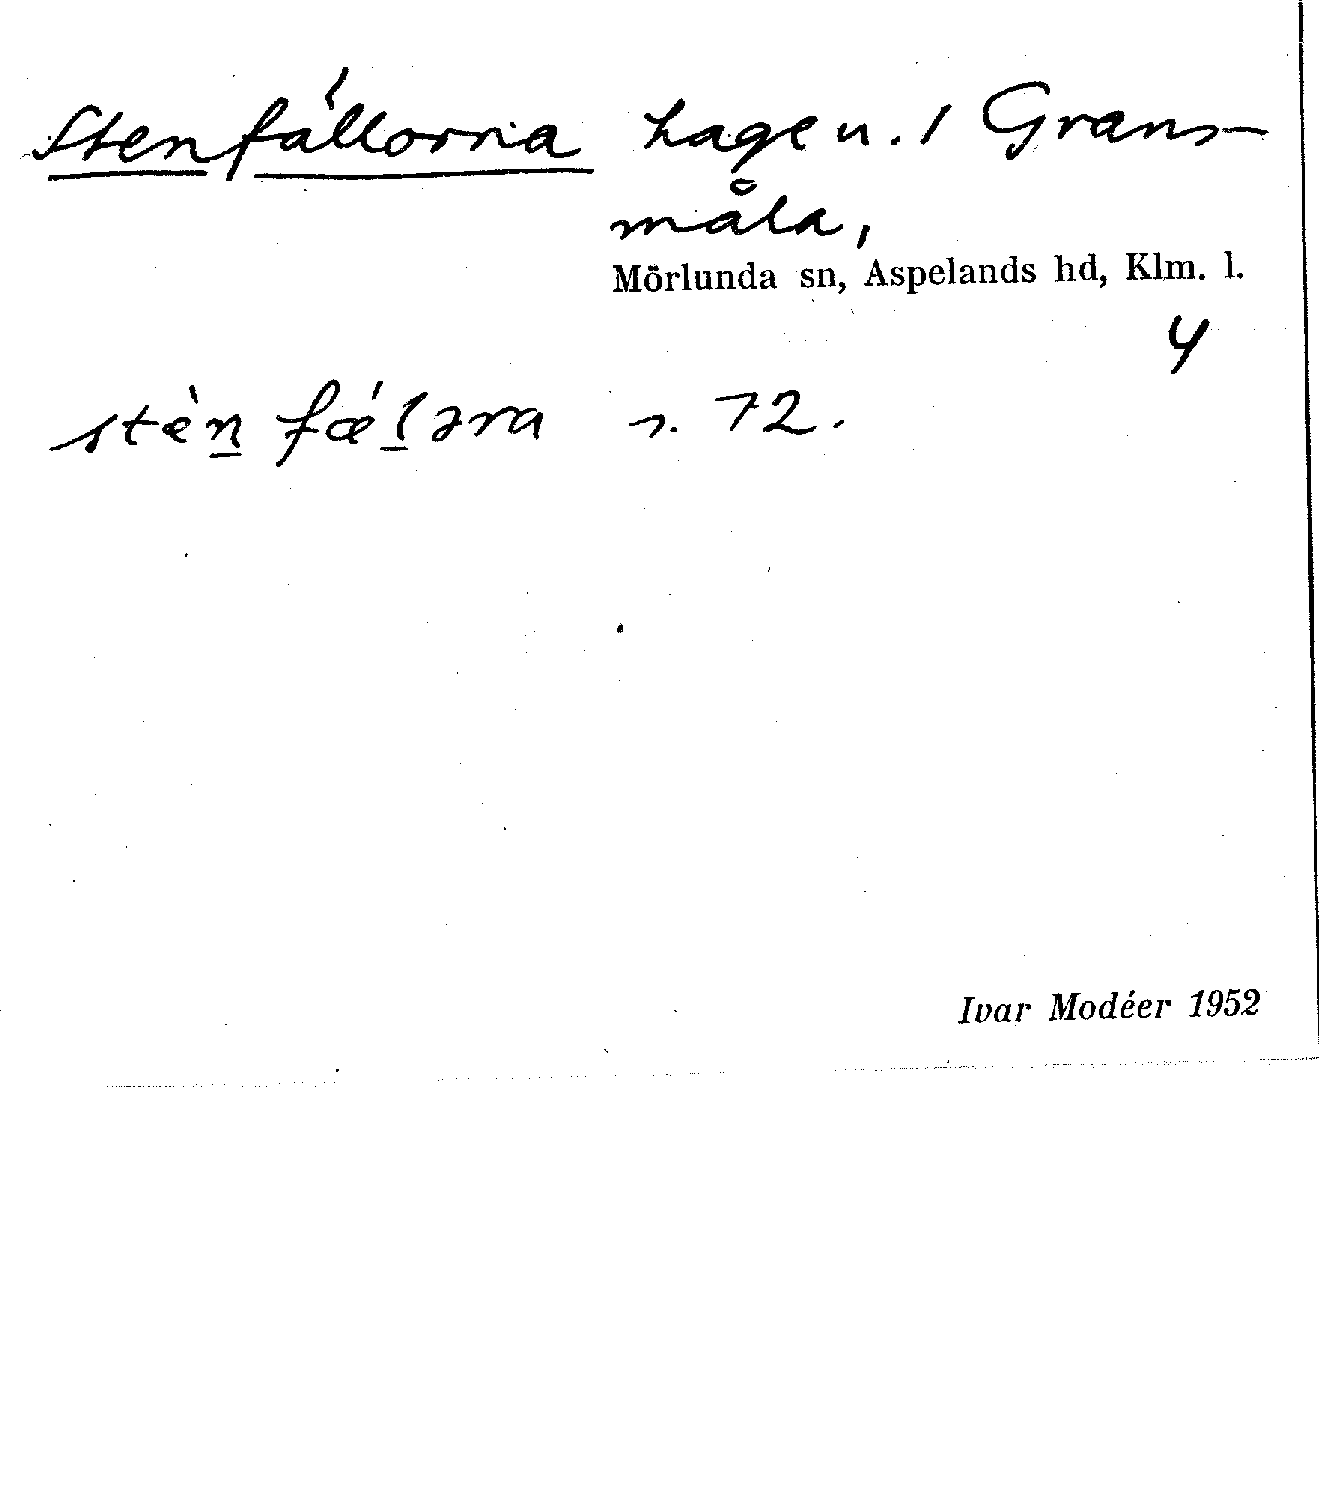 Stenfállorna hage u. 1 Grans-
måla,
Mörlunda sn, Aspelands hd, Klm. l.
4
stèn fǽləra s. 72.
Ivar Modéer 1952